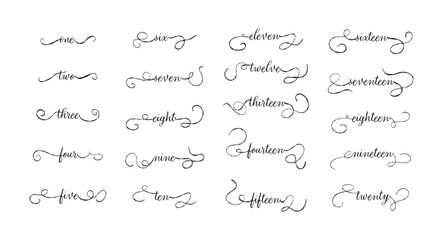 one
two
three
four
five
six
seven
eight
nine
ten
eleven
twelve
thirteen
fourteen
fifteen
sixteen
seventeen
eighteen
nineteen
twenty